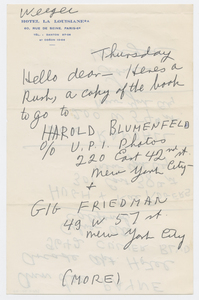 Weegee
HOTEL LA LOUISIANE
60, RUE DE SEINE, PARIS-6e
Thursday
Hello dear— Here's a
Rush, a copy of the book
to go to
HAROLD BLUMENFELD
c/o U.P.I. Photos
220 East 42nd st
New York City—
+
GIG FRIEDMAN
49 W 57 st
New York City
(MORE)